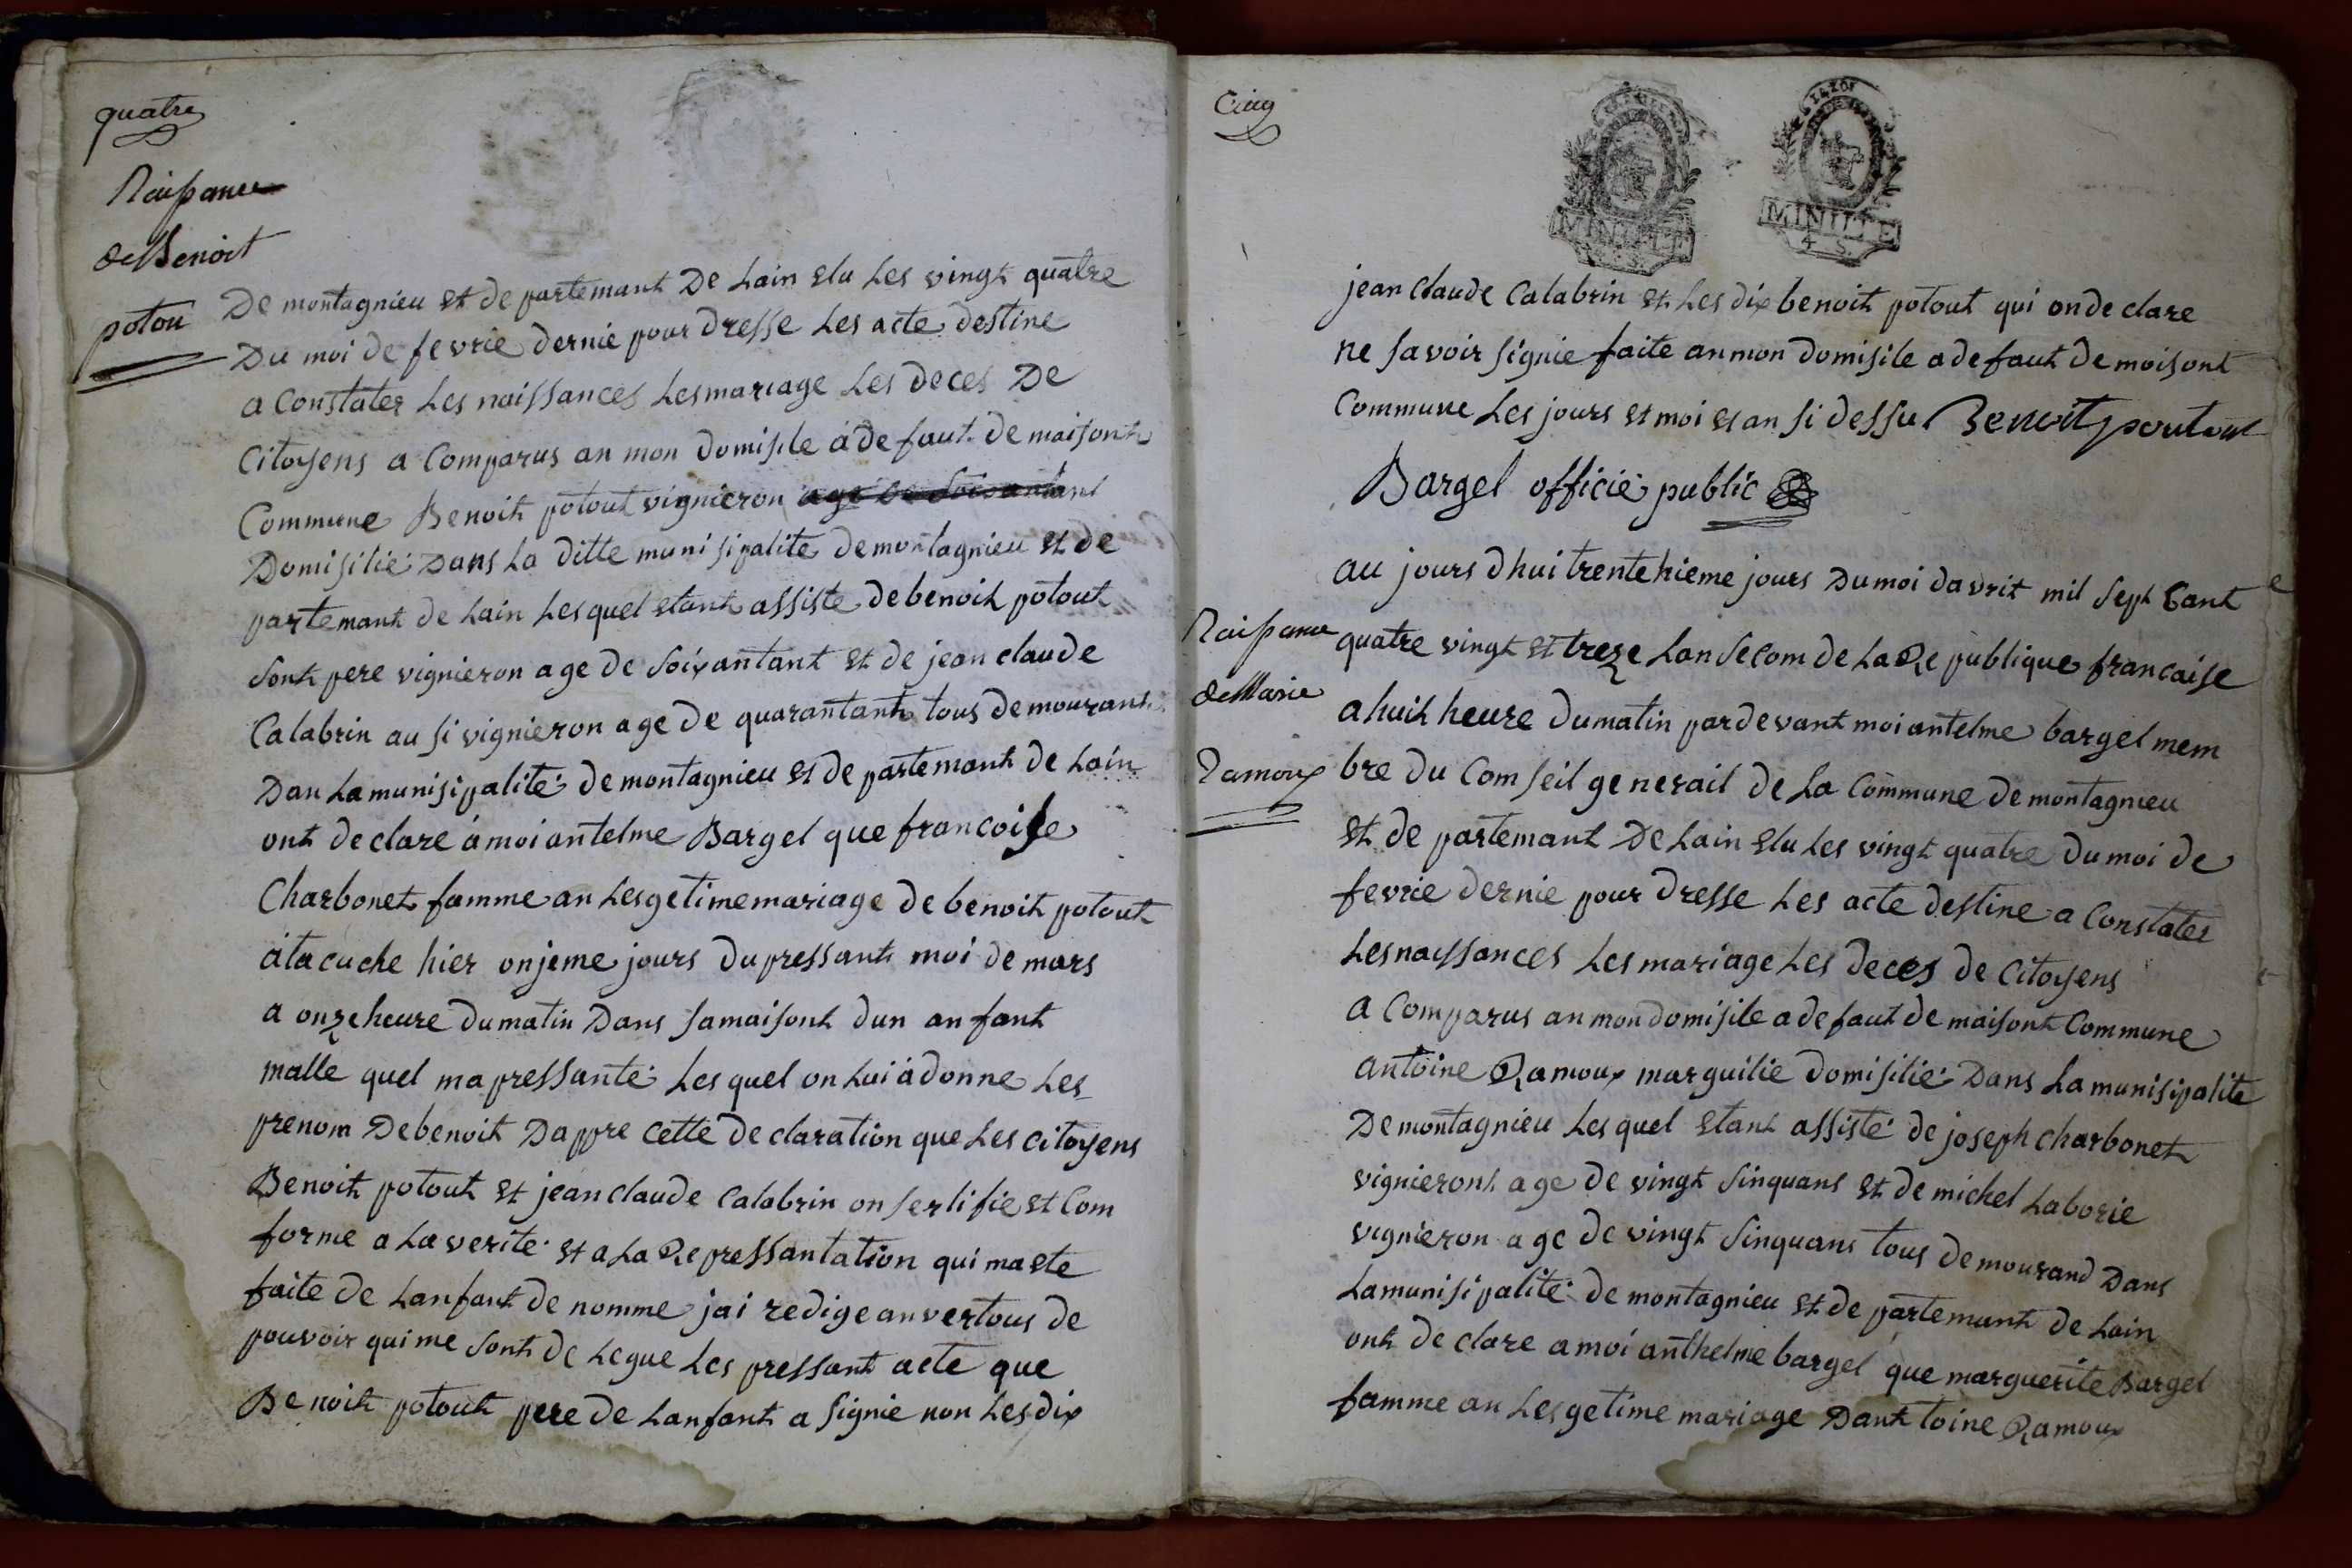 quatre
Naissance
de Benoit
potou
De montagnieu et de partemant De Lain elu Les vingt quatre
Du moi de fevrie dernie pour dresse Les acte destine
a Constater Les naissances Les mariage Les deces De
Citoyens a Comparus an mon domisile á de faut de maisont
Commune Benoit potout vignieron age de soixantant
Domisilié Dans La ditte munisipalite de montagnieu et de
partemant de Lain Lesquel etant assiste de benoit potout
sont pere vignieron age de soixantant et de jean claude
Calabrin au si vignieron age de quarantant tous demourant
Dan La munisipalité de montagnieu et de partemant de Lain
ont declare á moi antelme Bargel que francoise
Charbonet famme an Lesgetime mariage de benoit potout
átacuche hier onjeme jours du pressant moi de mars
a onze heure du matin Dans sa maisont dun anfant
malle quel ma pressanté Lesquel on Lui á donne Les
prenom De benoit Dappre Cette declaration que Les citoyens
Benoit potout et jean claude Calabrin on sertifie et Com
forme a La verité et a La Repressantation qui ma ete
faite de Lanfant de nomme jai redige an vertous de
pouvoir qui me sont de Legue Les pressant acte que
Benoit potout pere de Lanfant a signie non Les dix
Cinq
MINUTE
MINUTE
4 S.
jean Claude Calabrin et Les dix benoit potout qui on declare
ne savoir signie faite an mon domisile a de faut de moisont
Commune Les jours et moi et an si dessu Benoit poutout
Bargel officié public
au jours dhui trentehieme jours Du moi davrit mil sept Cant
Naissance
de Marie
Ramoux
quatre vingt et treze Lan secom de La Republique francaise
a huit heure du matin pardevant moi antelme bargel mem
bre du Comseil generail de La Commune de montagnieu
et de partemant De Lain elu Les vingt quatre du moi de
fevrie dernie pour dresse Les acte destine a Constater
Les nayssances Les mariage Les deces de Citoyens
a Comparus an mon domisile a de faut de maisont Commune
antoine Ramoux marguilie domisilié Dans La munisipalite
De montagnieu Lesquel etant assisté de joseph charbonet
vignieront age de vingt sinquans et de michel Laborie
vignieron age de vingt sinquans tous demourand Dans
La munisipalité de montagnieu et de partemant de Lain
ont declare a moi anthelme bargel que marguerite Bargel
famme an Lesgetime mariage Dant toine Ramoux